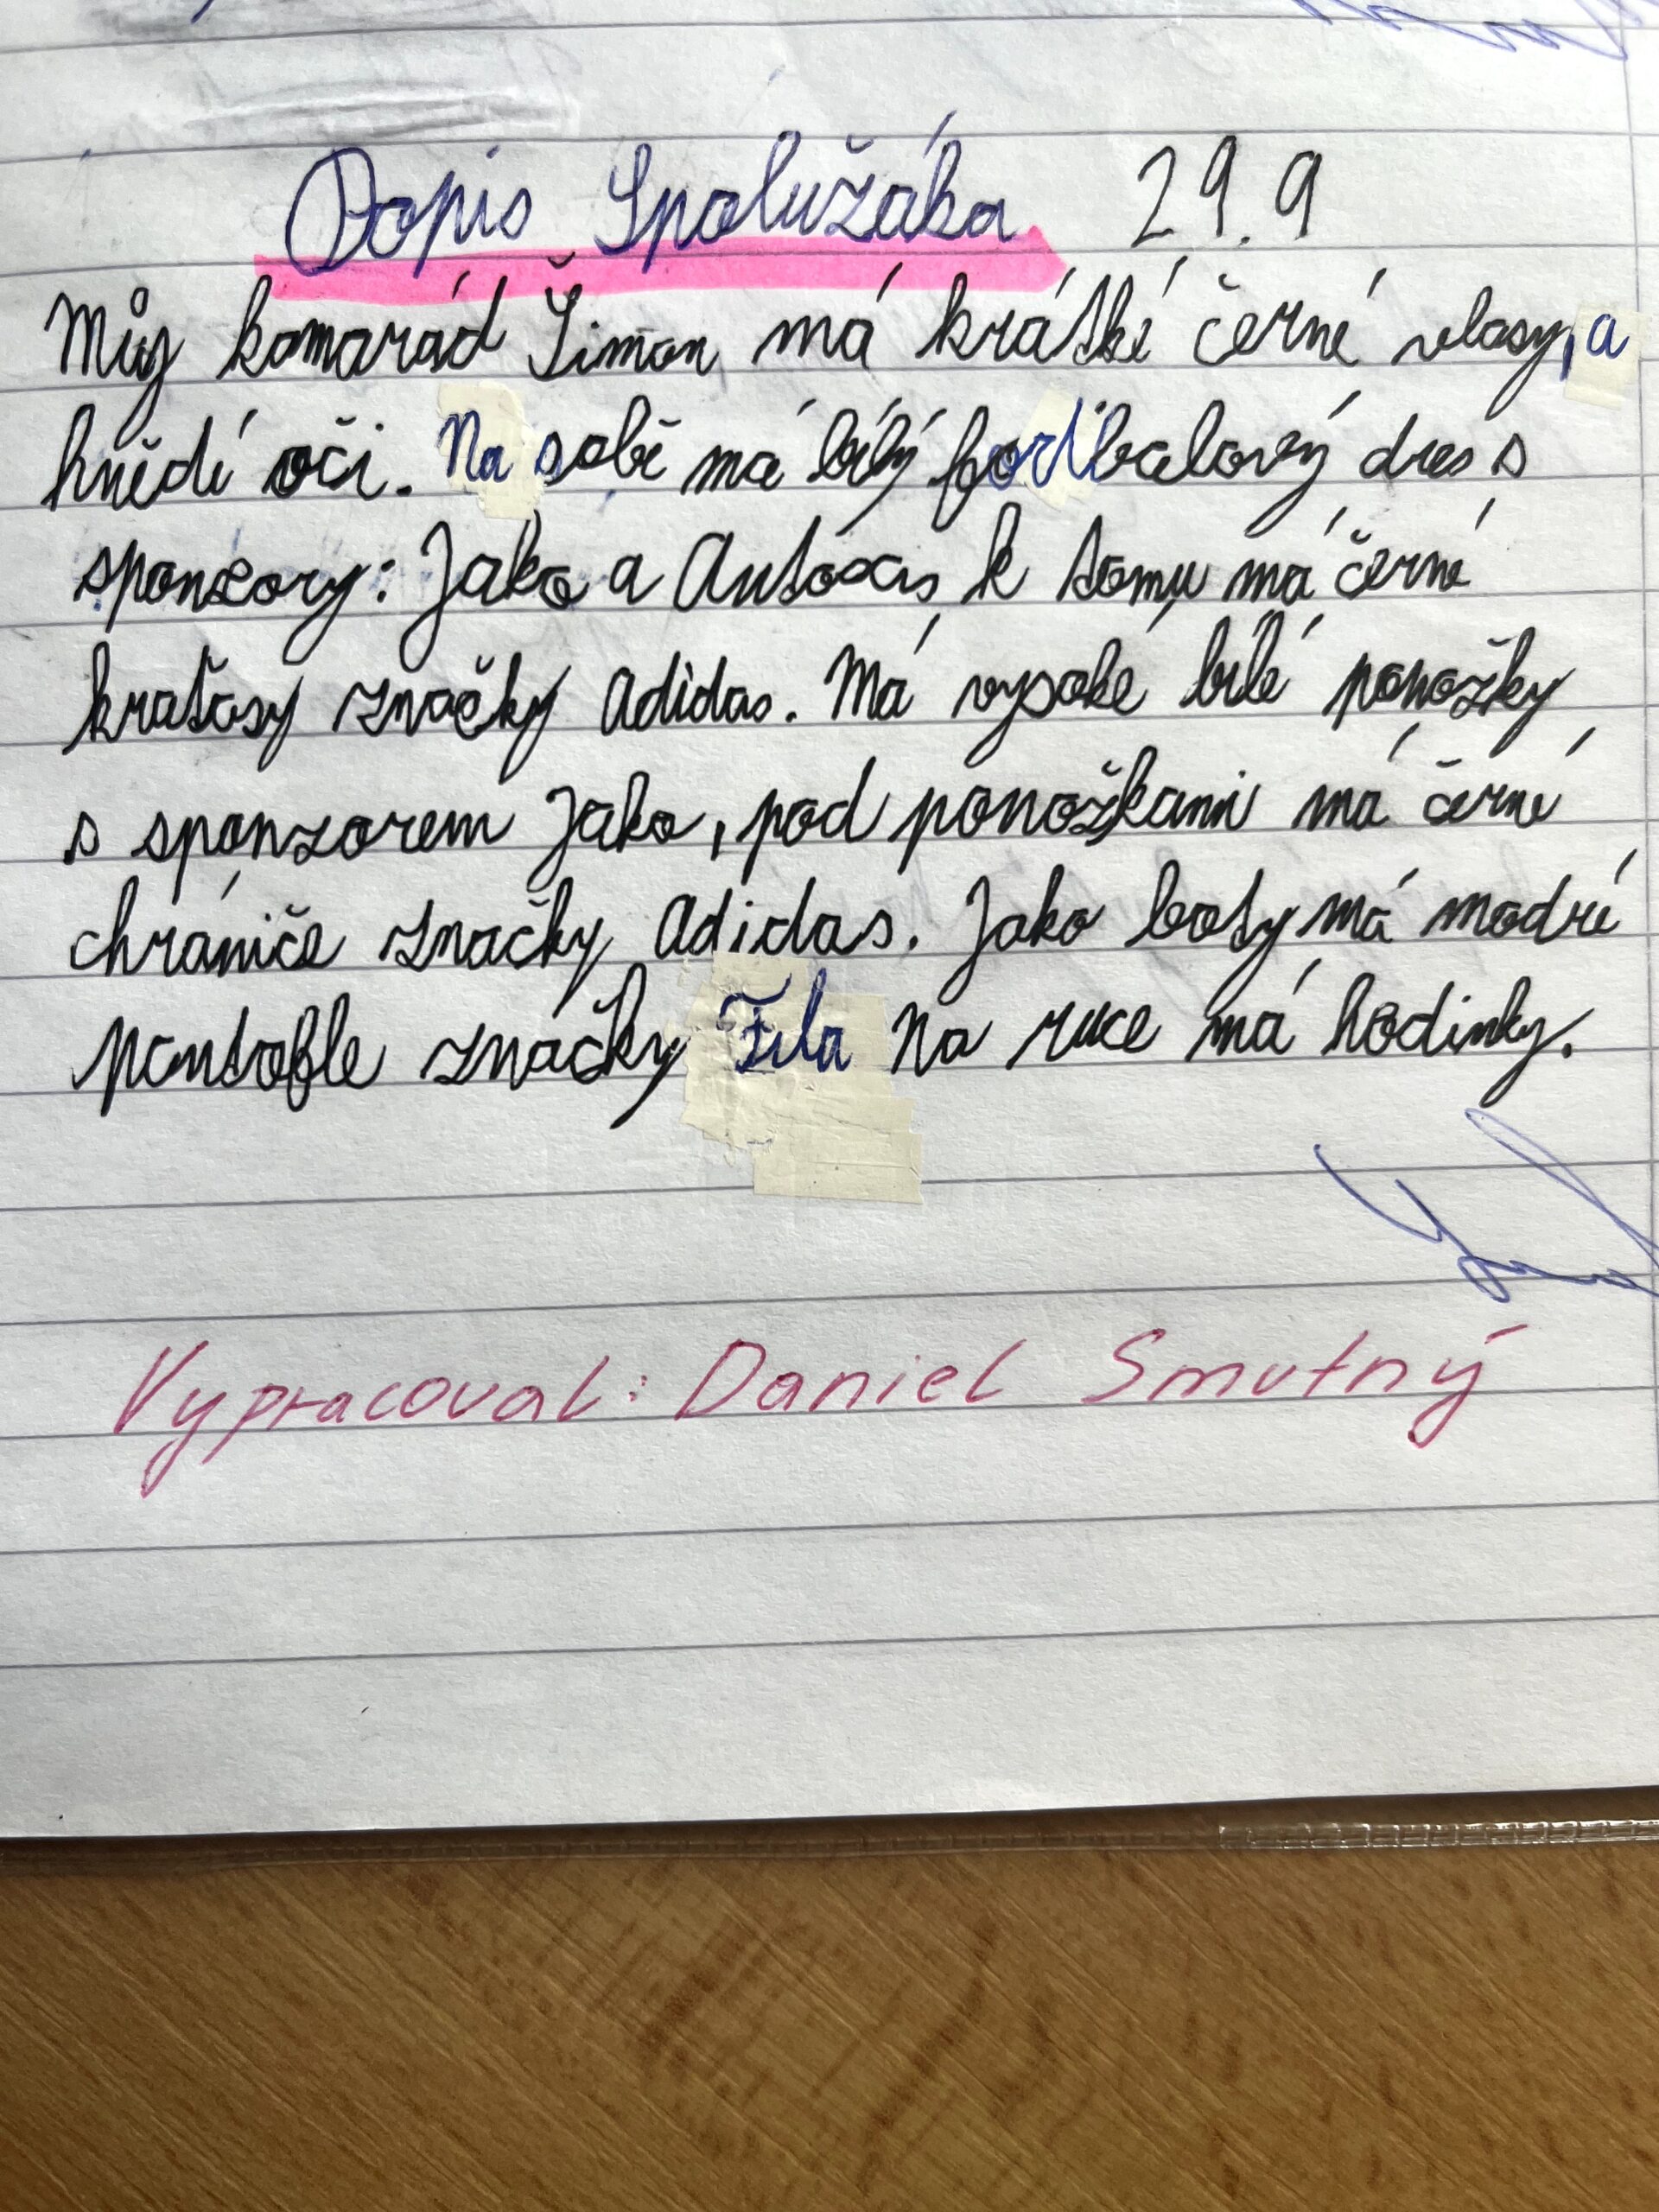 Popis Spolužáka 29.9
Můj kamarád Šimon má krátké černé vlasy, a
hnědí oči. Na sobě má bílý fotbalový dres s
sponzory: Jako a Autoxis, k tomu má černé
kraťasy značky Adidas. Má vysoké bílé ponožky
s sponzorem Jako, pod ponožkami má černé
chrániče značky Adidas. Jako boty má modré
pantofle značky Fila Na ruce má hodinky.
Vypracoval: Daniel Smutný